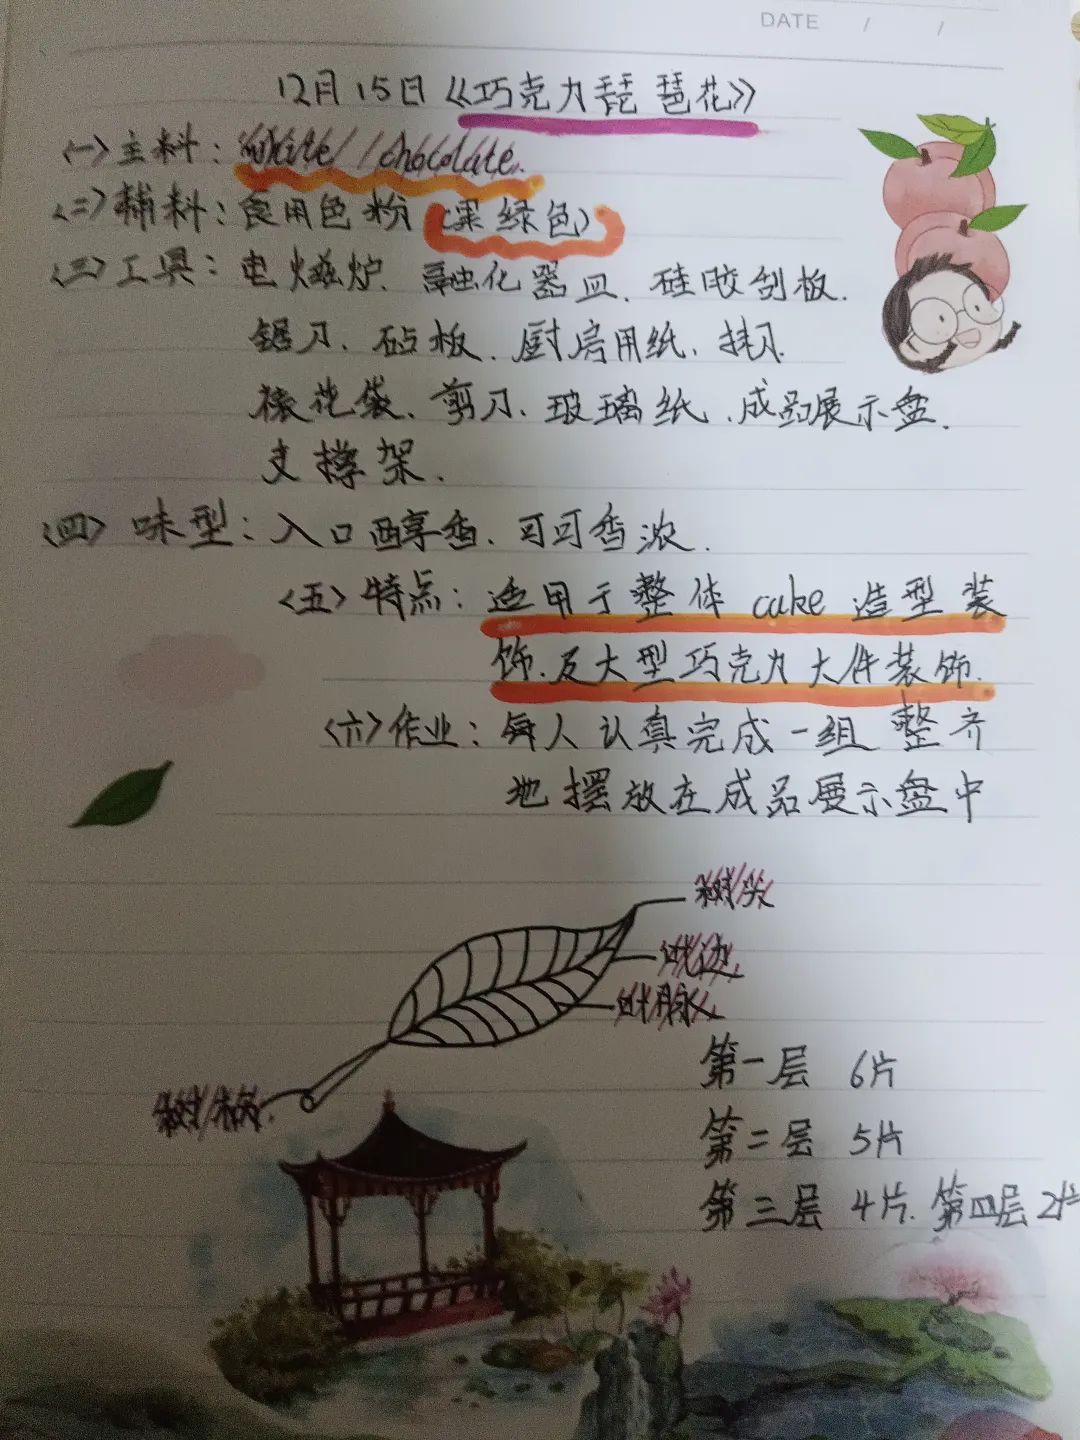 DATE / /
12月15日《巧克力琵琶花》
(一)主料: White chocolate.
(二)辅料: 食用色粉(果绿色)
(三)工具: 电磁炉. 融化器皿. 硅胶刮板.
锯刀. 砧板. 厨房用纸. 抹刀.
裱花袋. 剪刀. 玻璃纸. 成品展示盘.
支撑架.
(四) 味型: 入口醇香. 可可香浓.
(五)特点: 适用于整体 cake 造型装
饰.及大型巧克力大件装饰.
(六)作业: 每人认真完成一组 整齐
地摆放在成品展示盘中
树尖
叶边
叶脉
第一层 6片
树柄.
第二层 5片
第三层 4片. 第四层 2片